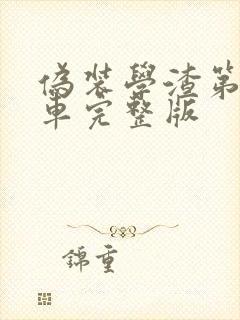 偽裝學渣第
車完整版
錦重